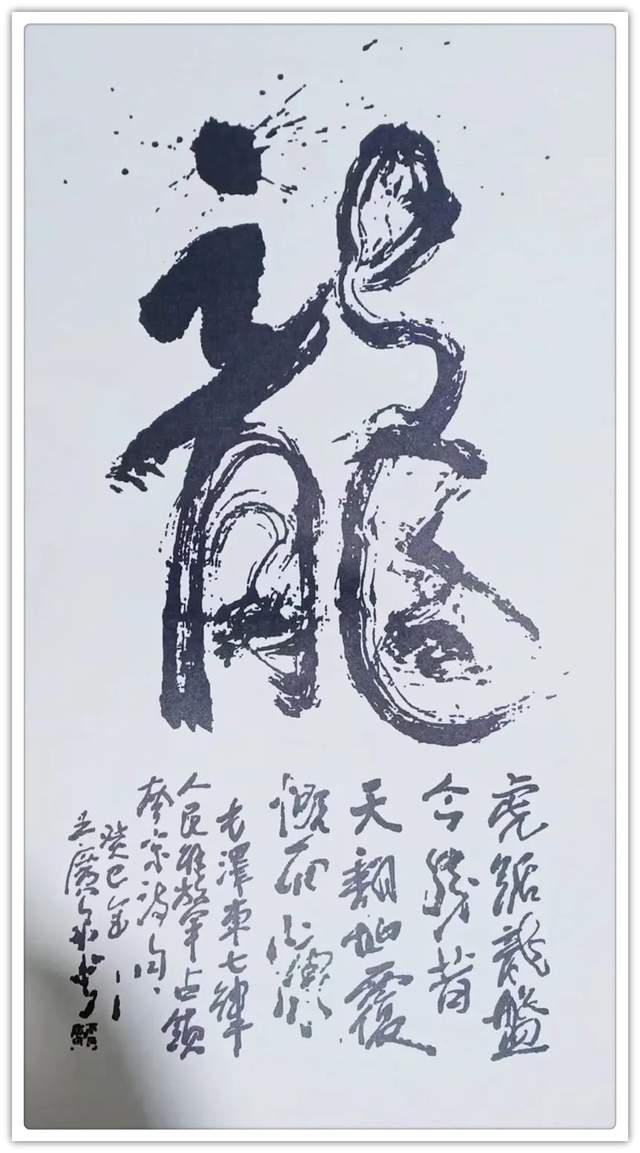 龍
虎踞龍盤
今勝昔
天翻地覆
慨而慷
毛澤東七律
人民解放軍占領
南京诗句
癸巳年
廣書